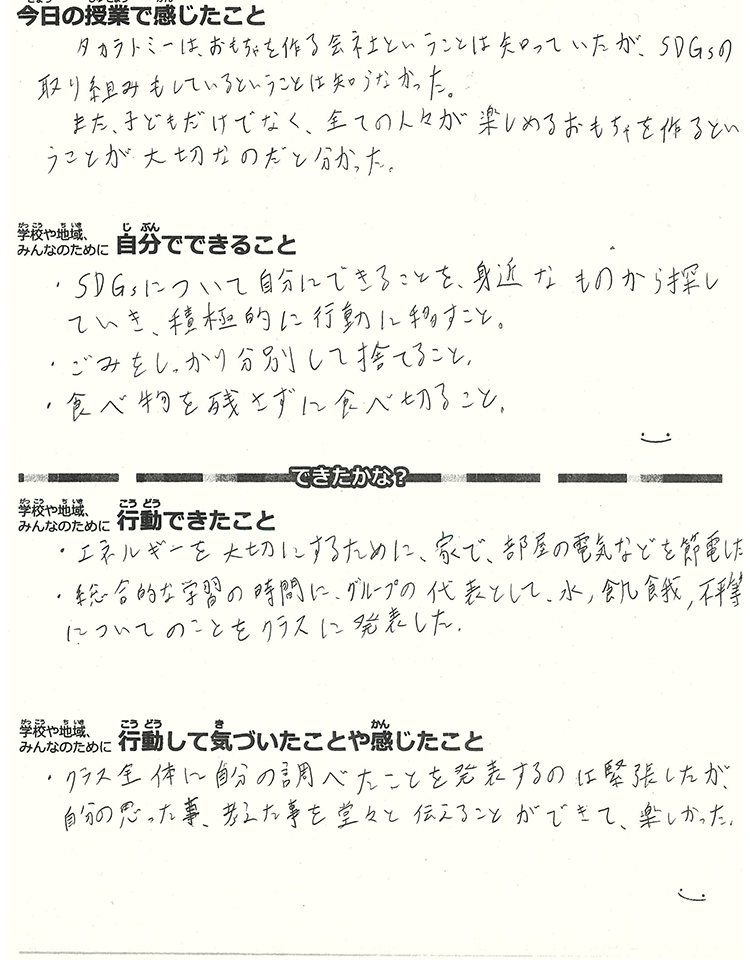 今日の授業で感じたこと
タカラトミーは、おもちゃを作る会社ということは知っていたが、SDGsの
取り組みもしているということは知らなかった。
また、子どもだけでなく、全ての人々が楽しめるおもちゃを作るとい
うことが大切なのだと分かった。
学校や地域、
みんなのために 自分でできること
・SDGsについて自分にできることを、身近なものから探し
ていき、積極的に行動に移すこと。
・ごみをしっかり分別して捨てること。
・食べ物を残さずに食べ切ること。
できたかな?
学校や地域、
みんなのために 行動できたこと
・エネルギーを大切にするために、家で、部屋の電気などを節電した
・総合的な学習の時間に、グループの代表として、水,飢餓,不平等
についてのことをクラスに発表した。
学校や地域、
みんなのために 行動して気づいたことや感じたこと
・クラス全体に自分の調べたことを発表するのは緊張したが、
自分の思った事、考えた事を堂々と伝えることができて、楽しかった。